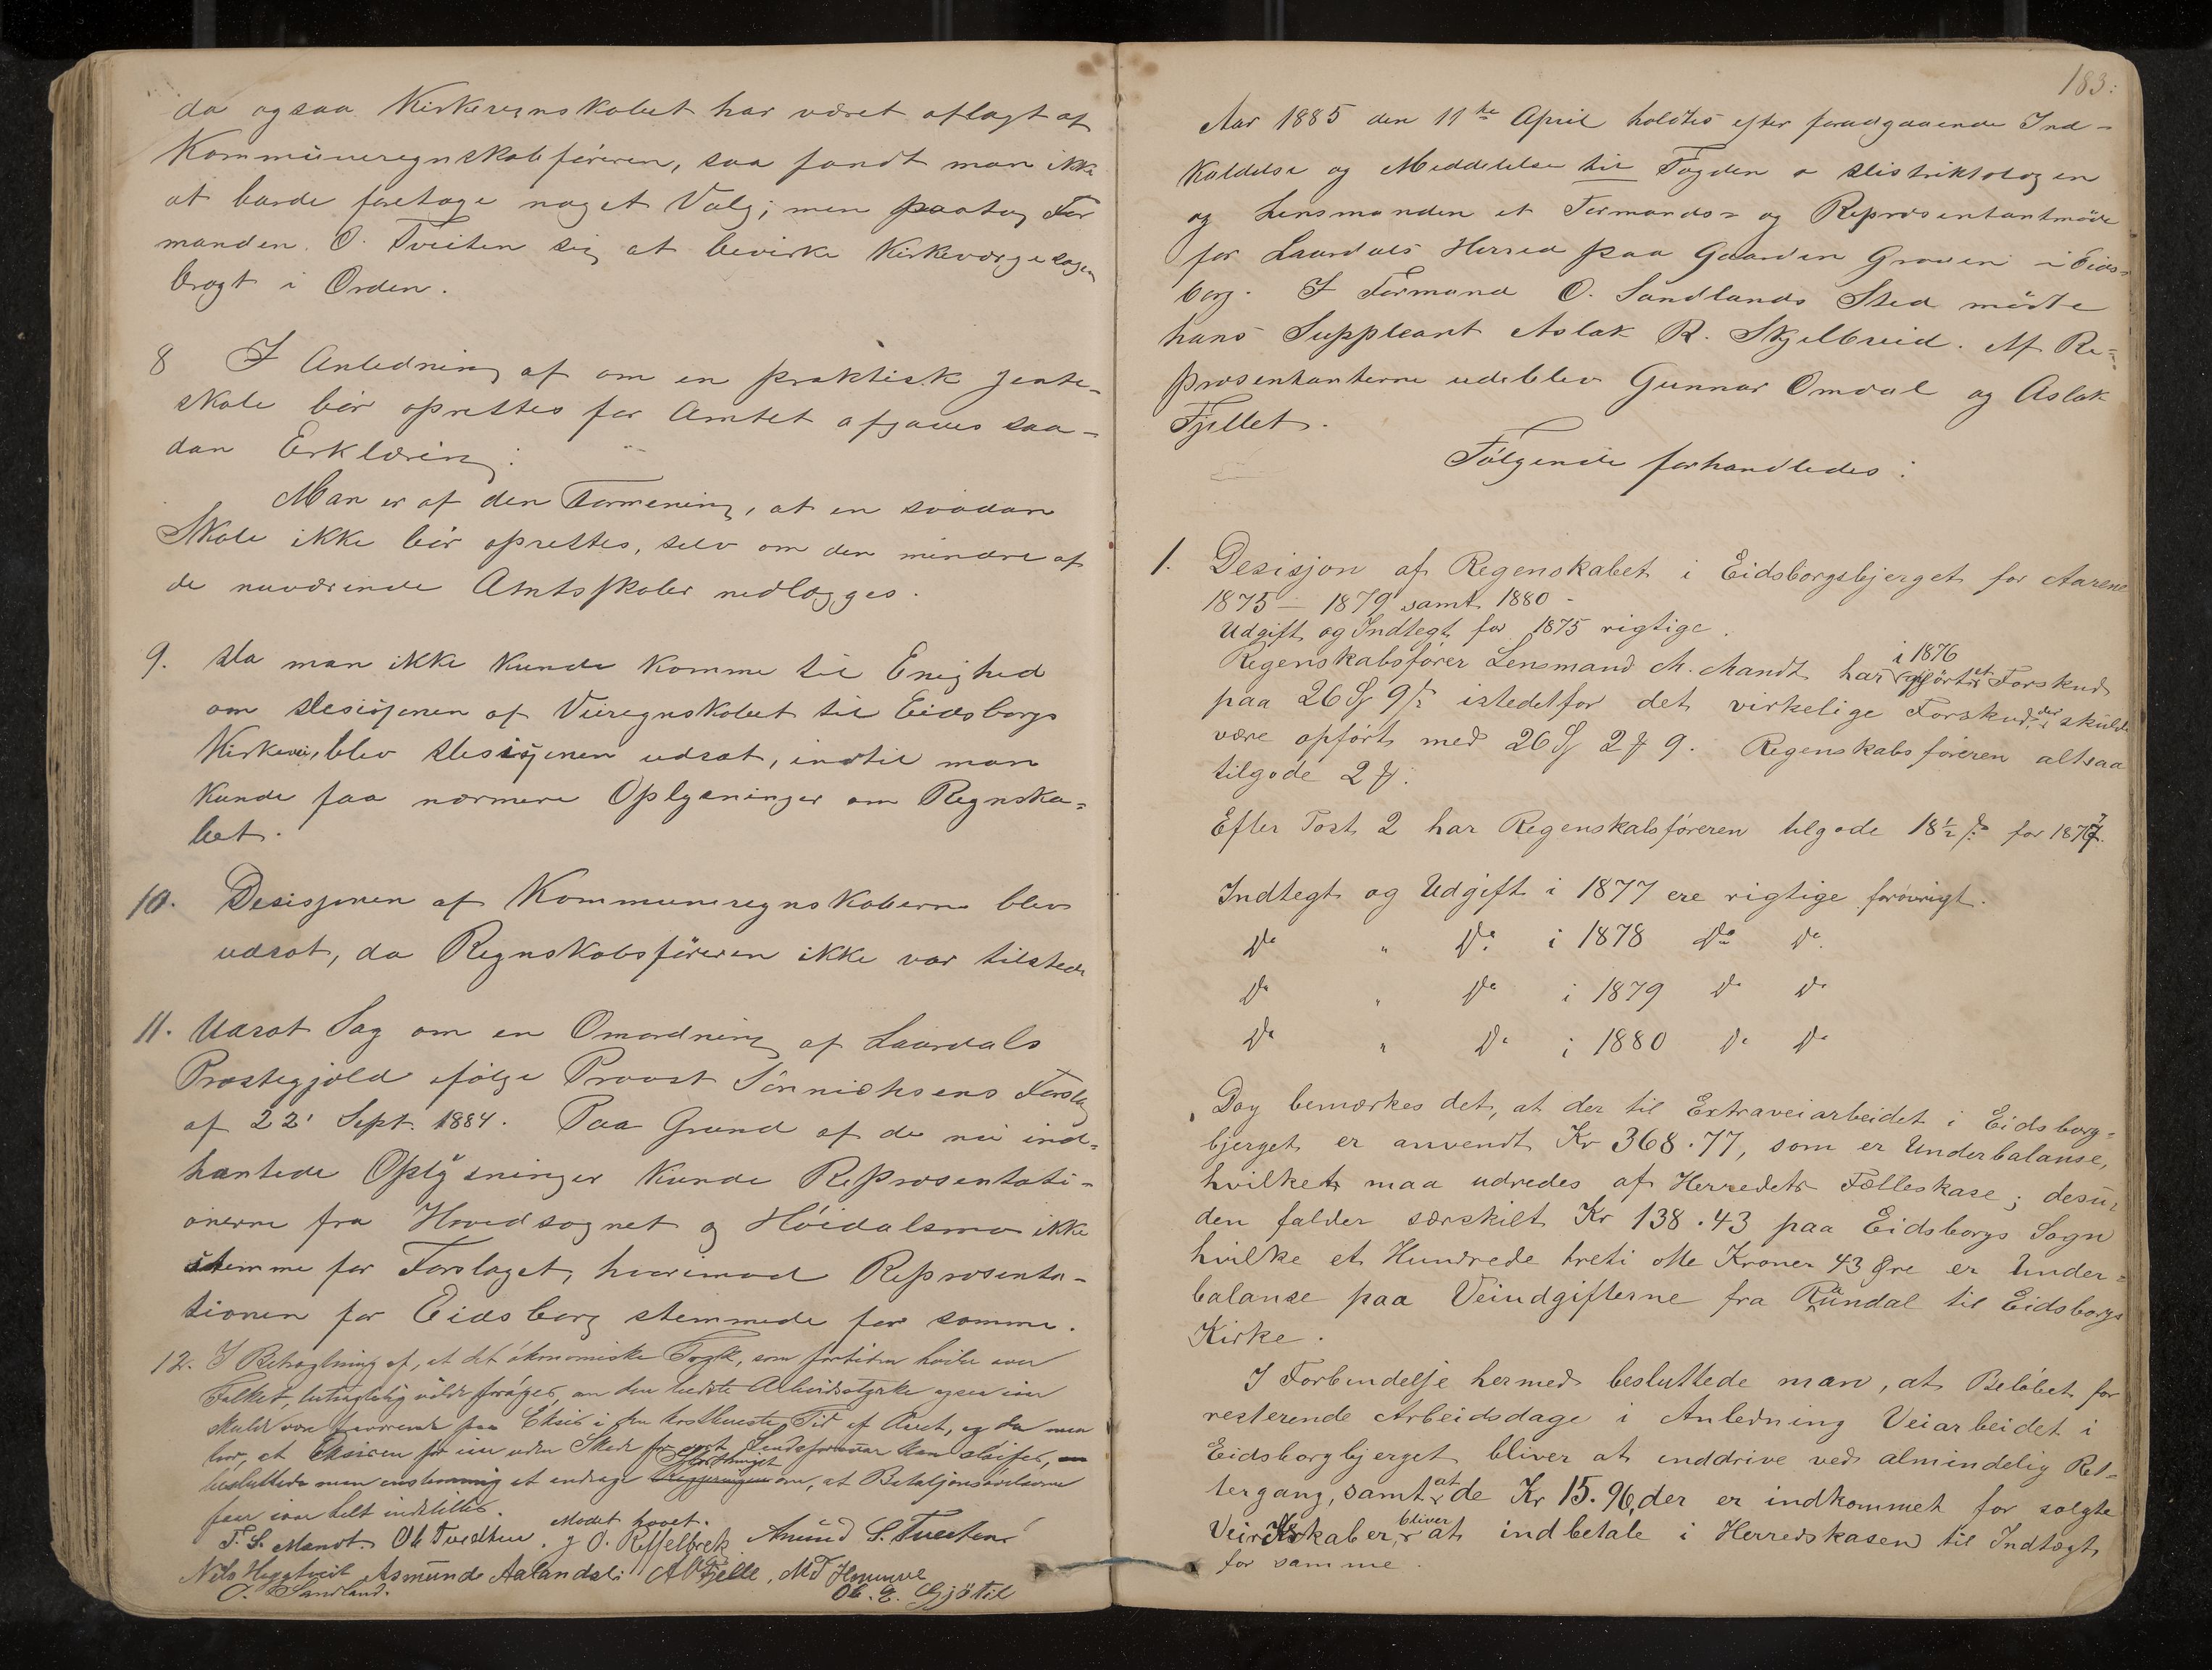 da ogsaa Kirkeregnskabet har været aflagt af
Kommuneregnskabsføreren, saa fandt man ikke
at burde foretage noget Valg; men paatog For
manden O. Tveiten sig at bevirke Kirkeværgesagen
bragt i Orden.
8 I Anledning af om en praktisk Jente-
skole bør oprettes for Amtet afgaves saa-
dan Erklæring:
Man er af den Formening, at en saadan
Skole ikke bør oprettes, selv om den mindre af
de nuværende Amtsskoler nedlægges.
9. Da man ikke kunde komme til Enighed
om Desisjonen af Veiregnskabet til Eidsborgs
Kirkevei, blev Desisjonen udsat, indtil man
kunde faa nærmere Oplysninger om Regnska=
bet.
10. Desisjonen af Kommuneregnskaberne blev
udsat, da Regnskabsføreren ikke var tilstede
11. Udsat Sag om en Omordning af Laardals
Præstegjæld ifølge Provst Sønnichsens Forslag
af 22' Sept. 1884. Paa Grund af de nu ind-
hentede Oplysninger kunde Repræsentati-
onerne fra Hovedsognet og Høidalsmo ikke
stemme for Forslaget, hvorimod Repræsenta-
tionen for Eidsborg stemmede for samme.
12. I Betragtning af, at det økonomiske Tryk, som fortiden hviler over
Folket, betragtelig vilde forøges, om den bedste Arbeidsstyrke ogsaa iaar
skulde være fraværende paa Eksis i den kostbareste Tid af Aaret, og da man
tror, at Eksisen for iaar uden Skade for vort Landsforsvar kan sløifes,
Storthinget
besluttede man enstemmig at andrage Regjeringen om, at Bataljonsøvelserne
faar iaar helt indstilles.
Mødet hævet.
T. S. Mandt. Ole Tveithen. J. O. Reffelbrek Amund S. Tveiten
Nils Heggtveit Asmund Aalandsli A O Fjelle, M T Hemmve
O. Sandland. Ol. G. Gjøtil
183.
Aar 1885 den 11te April holdtes efter foradgaaende Ind-
kaldelse og Meddelelse til Fogden o Distriktslægen
og Lensmanden et Formands- og Repræsentantmøde
for Laardals Herred paa Gaarden Graven i Eids-
borg. I Formand O. Sandlands Sted mødte
hans Suppleant Aslak R. Skjelbreid. Af Re-
præsentanterne udeblev Gunnar Omdal og Aslak
Fjellet.
Følgende forhandledes:
1. Desisjon af Regenskabet i Eidsborgsbjerget for Aarene
1875 – 1879 samt 1880 -
Udgift og Indtegt for 1875 rigtige.
i 1876
Regenskabsfører Lensmand M. Mandt har opført et Forskud
paa 26 S 9 ß istedetfor det virkelige Forskud, der skulde
være opført med 26 S 2 ß 9. Regenskabsføreren altsaa
tilgode 2 ß.
Efter Post 2 har Regenskabsføreren tilgode 18½ ß for 1877.
Indtegt og Udgift i 1877 ere rigtige forøvrigt.
Do " Do i 1878 Do Do
Do " Do i 1879 Do Do
Do " Do i 1880 Do Do
Dog bemærkes det, at der til Extraveiarbeidet i Eidsborg-
bjerget er anvendt Kr 368.77, som er Underbalanse,
hvilket maa udredes af Herredets Fælleskase; desu-
den falder særskilt Kr 138.43 paa Eidsborgs Sogn
hvilke et Hundrede treti otte Kroner 43 Øre er Under=
balanse paa Veiudgifterne fra Raundal til Eidsborgs
Kirke.
I Forbindelse hermed besluttede man, at Beløbet for
resterende Arbeidsdage i Anledning Veiarbeidet i
Eidsborgbjerget bliver at inddrive ved almindelig Ret-
tergang, samt at de Kr 15.96, der er indkommet for solgte
Veiredskaber, bliver at indbetale i Herredskasen til Indtægt
for samme.